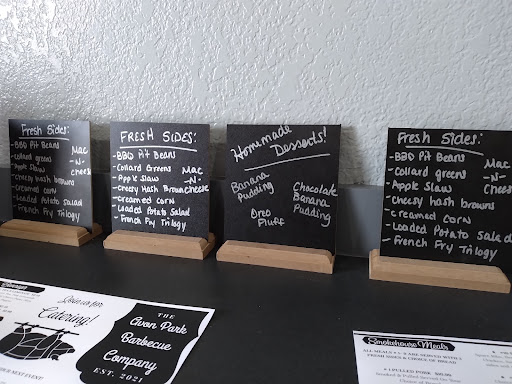 Fresh Sides:
-BBQ Pit Beans
-collard greens
-Apple Slaw
-cheesy hash browns
-creamed corn
-Loaded Potato salad
-French Fry Trilogy
Mac
-N-
cheese
FRESH SIDES:
-BBQ Pit Beans
-Collard Greens
-Apple Slaw
-Cheesy Hash Browns
-Creamed Corn
-Loaded Potato Salad
-French Fry Trilogy
Mac
-N-
cheese
Homemade
Desserts!
Banana
Pudding
Chocolate
Banana
Pudding
Oreo
Fluff
Fresh Sides:
-BBQ Pit Beans
-Collard greens
-Apple Slaw
-cheesy hash browns
-creamed corn
-Loaded Potato Salad
-French Fry Trilogy
Mac
-N-
cheese
Catering!
THE
Avon Park
Barbecue
Company
EST. 2021
Smokehouse Meals
ALL MEALS
ARE SERVED WITH
& CHOICE OF BREAD
1 PULLED PORK